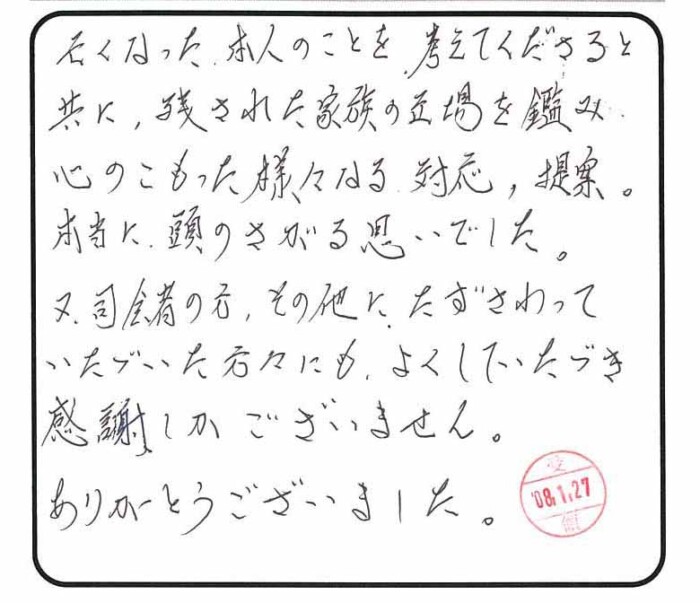 亡くなった本人のことを、考えてくださると
共に、残された家族の立場を鑑み
心のこもった様々なる対応，提案。
本当に頭のさがる思いでした。
又、司会者の方、その他に、たずさわって
いたづいた方々にも、よくしていたづき
感謝しかございません。
ありがとうございました。
受
'08.1.27